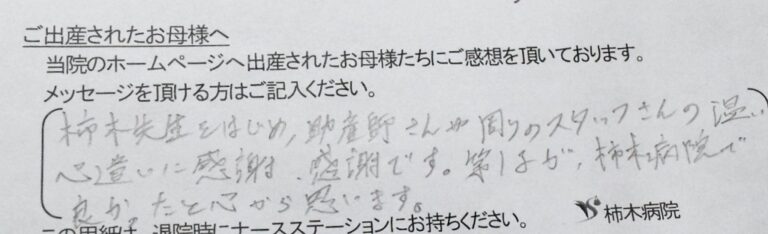 ご出産されたお母様へ
当院のホームページへ出産されたお母様たちにご感想を頂いております。
メッセージを頂ける方はご記入ください。
柿木先生をはじめ、助産師さんや周りのスタッフさんの温い
心遣いに感謝、感謝です。第1子が、柿木病院で
良かったと心から思います。
この用紙は、退院時にナースステーションにお持ちください。
柿木病院